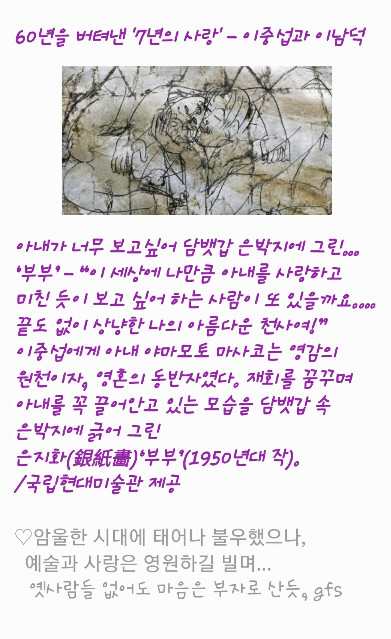 60년을 버텨낸 '7년의 사랑' - 이중섭과 이남덕
아내가 너무 보고싶어 담뱃갑 은박지에 그린...
'부부' - "이 세상에 나만큼 아내를 사랑하고
미친 듯이 보고 싶어 하는 사람이 또 있을까요....
끝도 없이 상냥한 나의 아름다운 천사여!"
이중섭에게 아내 야마모토 마사코는 영감의
원천이자, 영혼의 동반자였다. 재회를 꿈꾸며
아내를 꼭 끌어안고 있는 모습을 담뱃갑 속
은박지에 긁어 그린
은지화(銀紙畵)'부부'(1950년대 작).
/국립현대미술관 제공
♡암울한 시대에 태어나 불우했으나,
예술과 사랑은 영원하길 빌며...
옛사람들 없어도 마음은 부자로 산듯, gfs